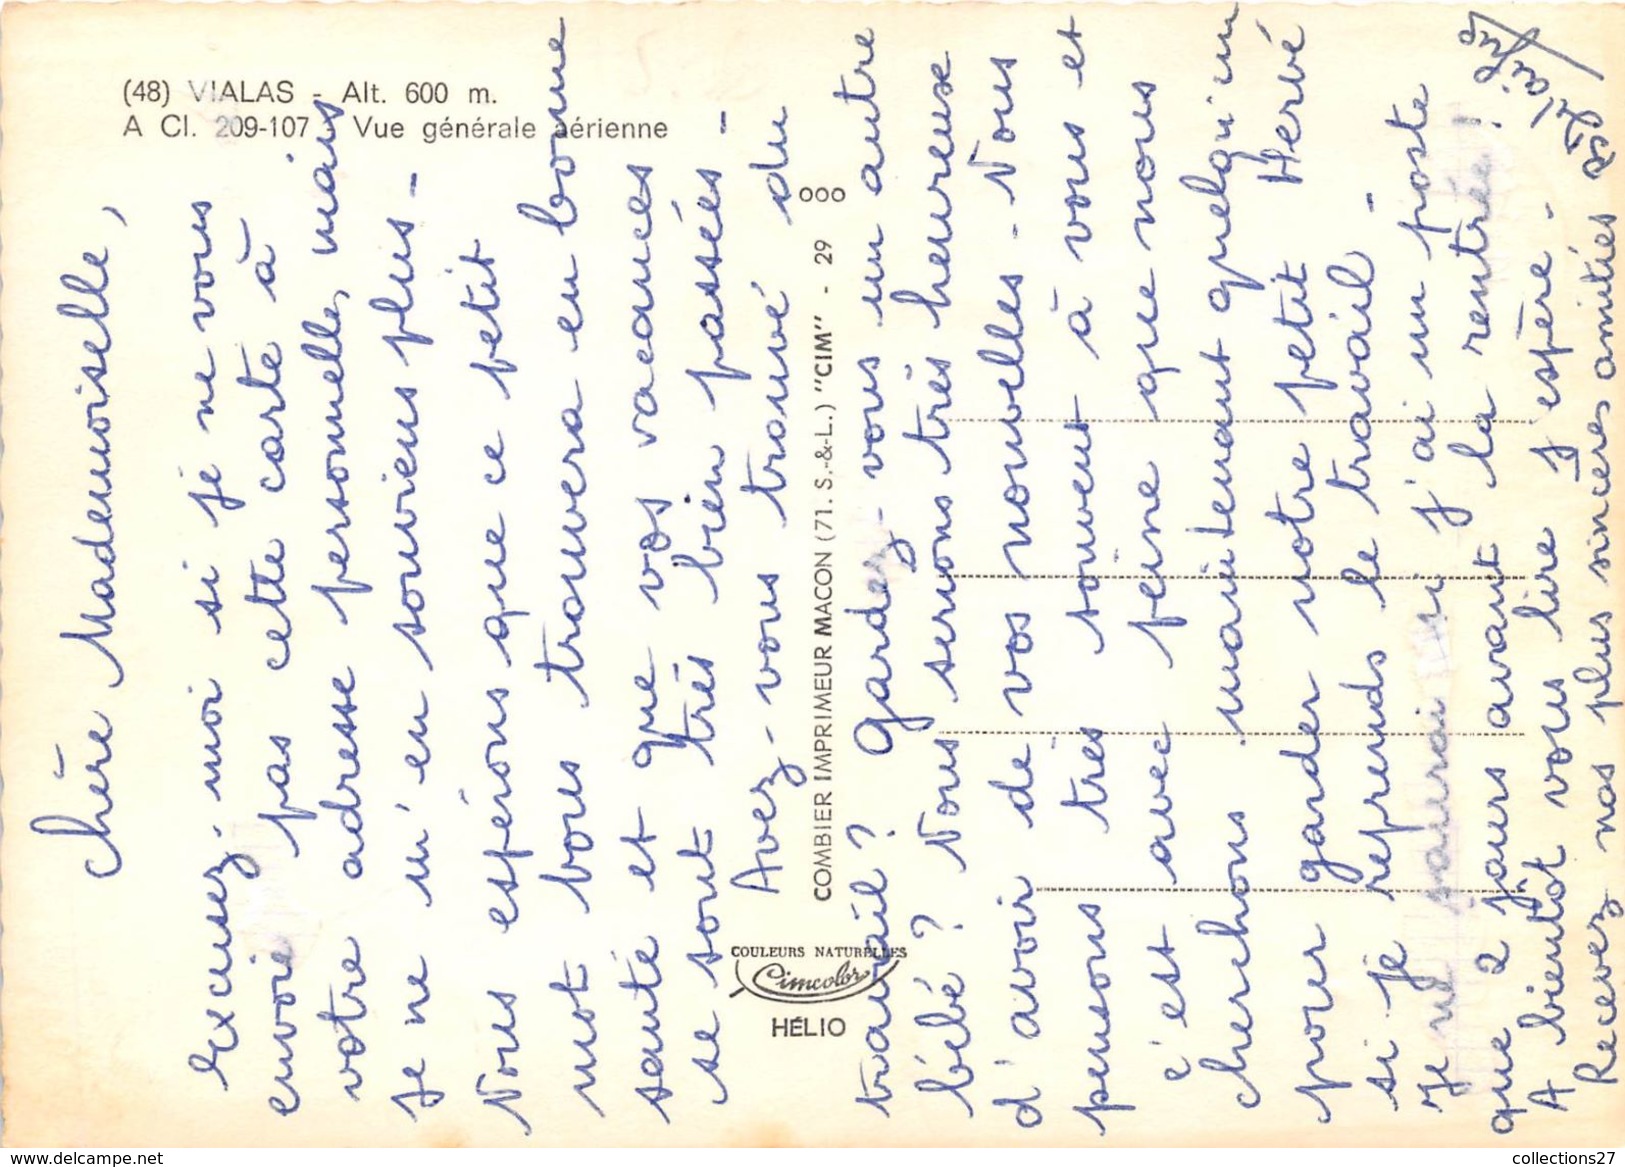 (48) VIALAS - Alt. 600 m.
A Cl. 209-107 Vue générale aérienne
Chère Mademoiselle,
Excusez-moi si je ne vous
envoie pas cette carte à
votre adresse personnelle, mais
je ne m'en souviens plus -
Nous espérons que ce petit
mot vous trouvera en bonne
santé et que vos vacances
se sont très bien passées -
Avez-vous trouvé du
travail? Gardez-vous un autre
bébé? Nous serions très heureuse
d'avoir de vos nouvelles - Nous
pensons très souvent à vous et
c'est avec peine que nous
cherchons maintenant quelqu'un
pour garder notre petit Hervé
si je reprends le travail -
Je ne saurai si j'ai un poste
que 2 jours avant la rentrée!
A bientôt vous lire j'espère -
Recevez nos plus sincères amitiés
COMBIER IMPRIMEUR MACON (71. S.-&-L.) "CIM" - 29 ooo
COULEURS NATURELLES
Cimcolor
HÉLIO
www.delcampe.net
collections27